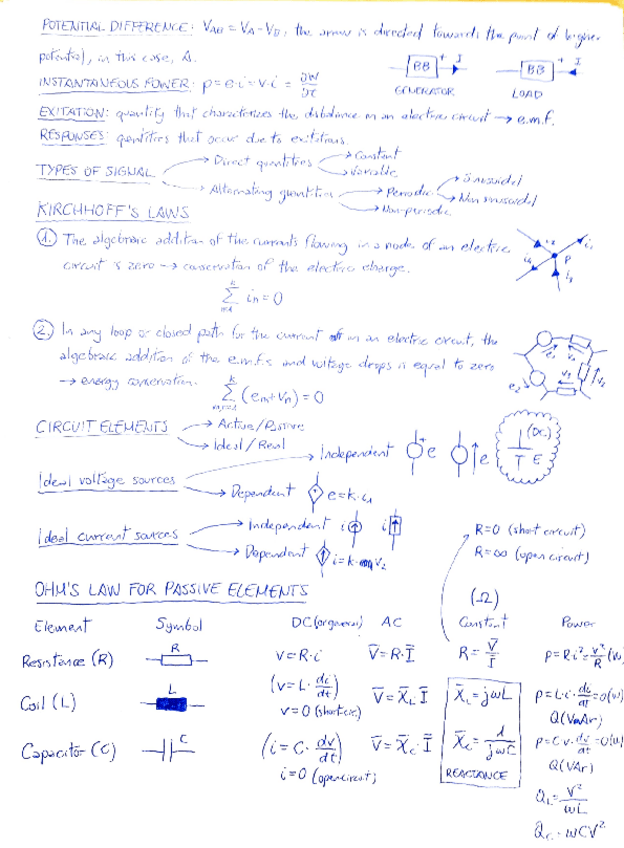 POTENTIAL DIFFERENCE: VAB = VA - VB, the arrow is directed towards the point of higher
potential, in this case, A.
BB + I
GENERATOR
BB + I
LOAD
INSTANTANEOUS POWER: p = e·i = v·i = ∂W/∂t
EXITATION: quantity that characterizes the disbalance in an electric circuit → e.m.f.
RESPONSES: quantities that occur due to exitations.
TYPES OF SIGNAL → Direct quantities → Constant
→ Variable
→ Alternating quantities → Periodic → Sinusoidal
→ Non sinusoidal
→ Non-periodic
KIRCHHOFF'S LAWS
1. The algebraic addition of the currents flowing in a node of an electric
circuit is zero → conservation of the electric charge.
Σ in = 0
P
2. In any loop or closed path for the current in an electric circuit, the
algebraic addition of the e.m.f.s and voltage drops is equal to zero
→ energy conservation.
Σ (em + vn) = 0
CIRCUIT ELEMENTS → Active/Passive
→ Ideal/Real
Ideal voltage sources → Independent e e (DC) E
→ Dependent e = k·
Ideal current sources → Independent i i
→ Dependent i = k· v2
R=0 (short circuit)
R=∞ (open circuit)
OHM'S LAW FOR PASSIVE ELEMENTS
(Ω)
Element Symbol DC AC Constant Power
Resistance (R) R v = R·i V̄ = R·Ī R = V̄/Ī p = R i² = v²/R
Coil (L) L (v = L·di/dt) V̄ = X̄L·Ī X̄L = jωL p = L·i·di/dt = 0
v = 0 (short circ.)
Q(VAr)
Capacitor (C) C (i = C·dv/dt) V̄ = X̄c·Ī X̄c = 1/jωC p = C·v·dv/dt = 0
i = 0 (open circuit)
REACTANCE
Q(VAr)
QL = V²/ωL
Qc = ωCV²